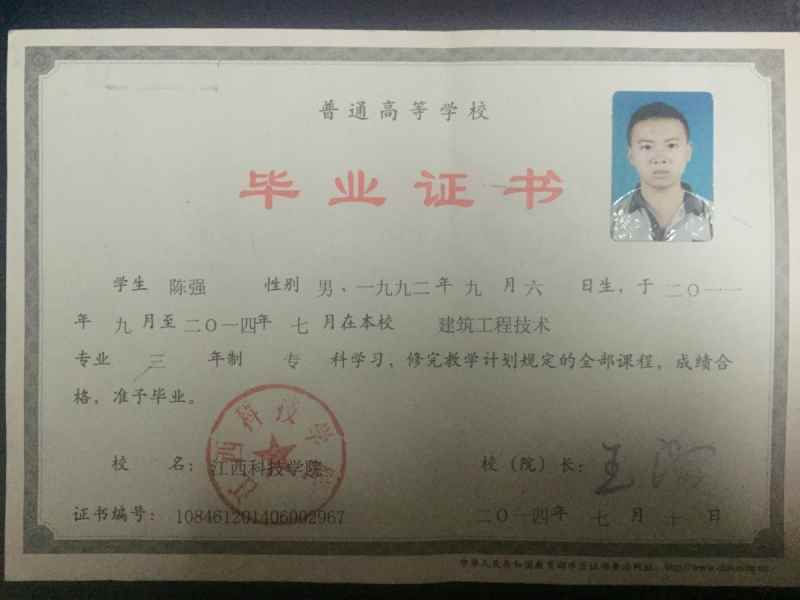 普通高等学校
毕业证书
学生 陈强 性别 男、一九九二年 九 月 六 日生，于 二〇一一
年 九 月至 二〇一四年 七 月在本校 建筑工程技术
专业 三 年制 专 科学习，修完教学计划规定的全部课程，成绩合
格，准予毕业。
江西科技学院
校 名：江西科技学院 校（院）长：
证书编号：108461201406002967 二〇一四年 七 月 十 日
中华人民共和国教育部学历证书查询网址：